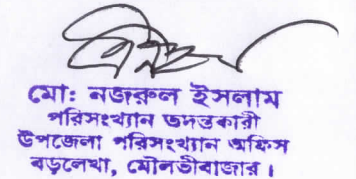 মো: নজরুল ইসলাম
পরিসংখ্যান তদন্তকারী
উপজেলা পরিসংখ্যান অফিস
বড়লেখা, মৌলভীবাজার।